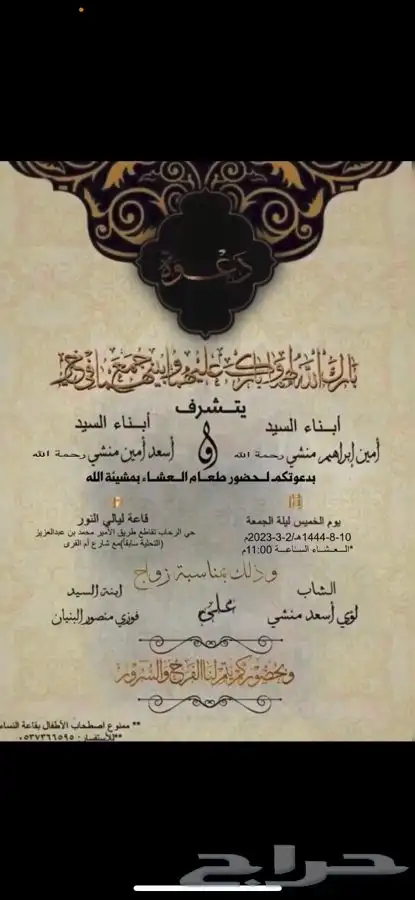 دعوة
بارك الله لهما وبارك عليهما وجمع بينهما في خير
يتشرف
أبناء السيد
أمين إبراهيم منشي رحمة الله
و
أبناء السيد
أسعد أمين منشي رحمة الله
بدعوتكم لحضور طعام العشاء بمشيئة الله
يوم الخميس ليلة الجمعة
1444-8-10هـ/2-3-2023م
*العشاء الساعة 11:00م
قاعة ليالي النور
حي الرحاب تقاطع طريق الأمير محمد بن عبدالعزيز
(التحلية سابقا)مع شارع أم القرى
وذلك بمناسبة زواج
الشاب
لؤي أسعد منشي
على
ابنة السيد
فوزي منصور البنيان
وبحضوركم يتم لنا الفرح والسرور
** ممنوع اصطحاب الأطفال بقاعة النساء
**للاستفسار: ٠٥٣٧٣٦٦٥٩٥
حراج